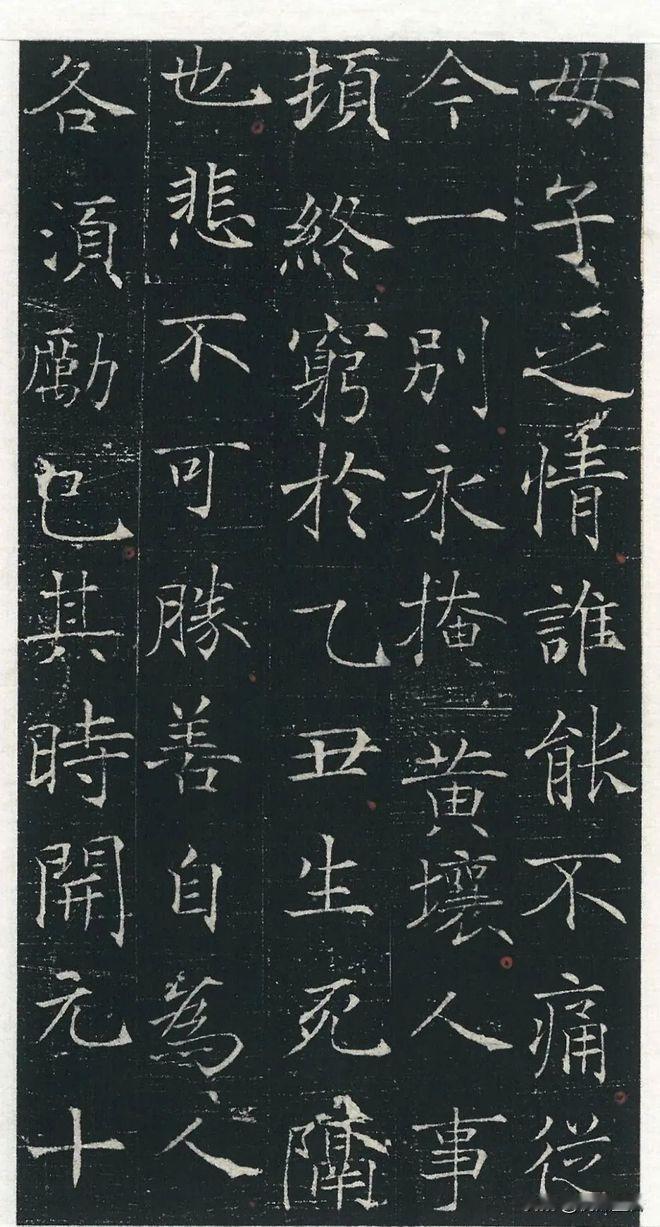 母子之情誰能不痛從
今一別永掩黃壤人事
頓終窮於乙丑生死隔
也悲不可勝善自為人
各須勵己其時開元十